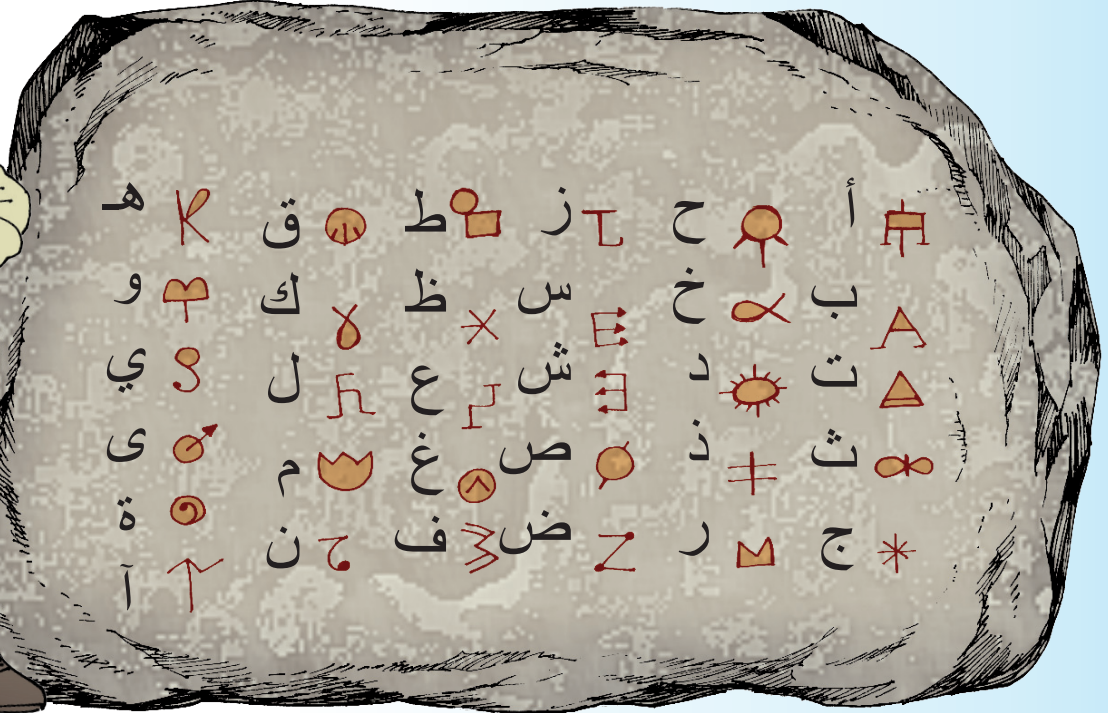 أ
ب
ت
ث
ج
ح
خ
د
ذ
ر
ز
س
ش
ص
ض
ط
ظ
ع
غ
ف
ق
ك
ل
م
ن
هـ
و
ي
ى
ة
آ